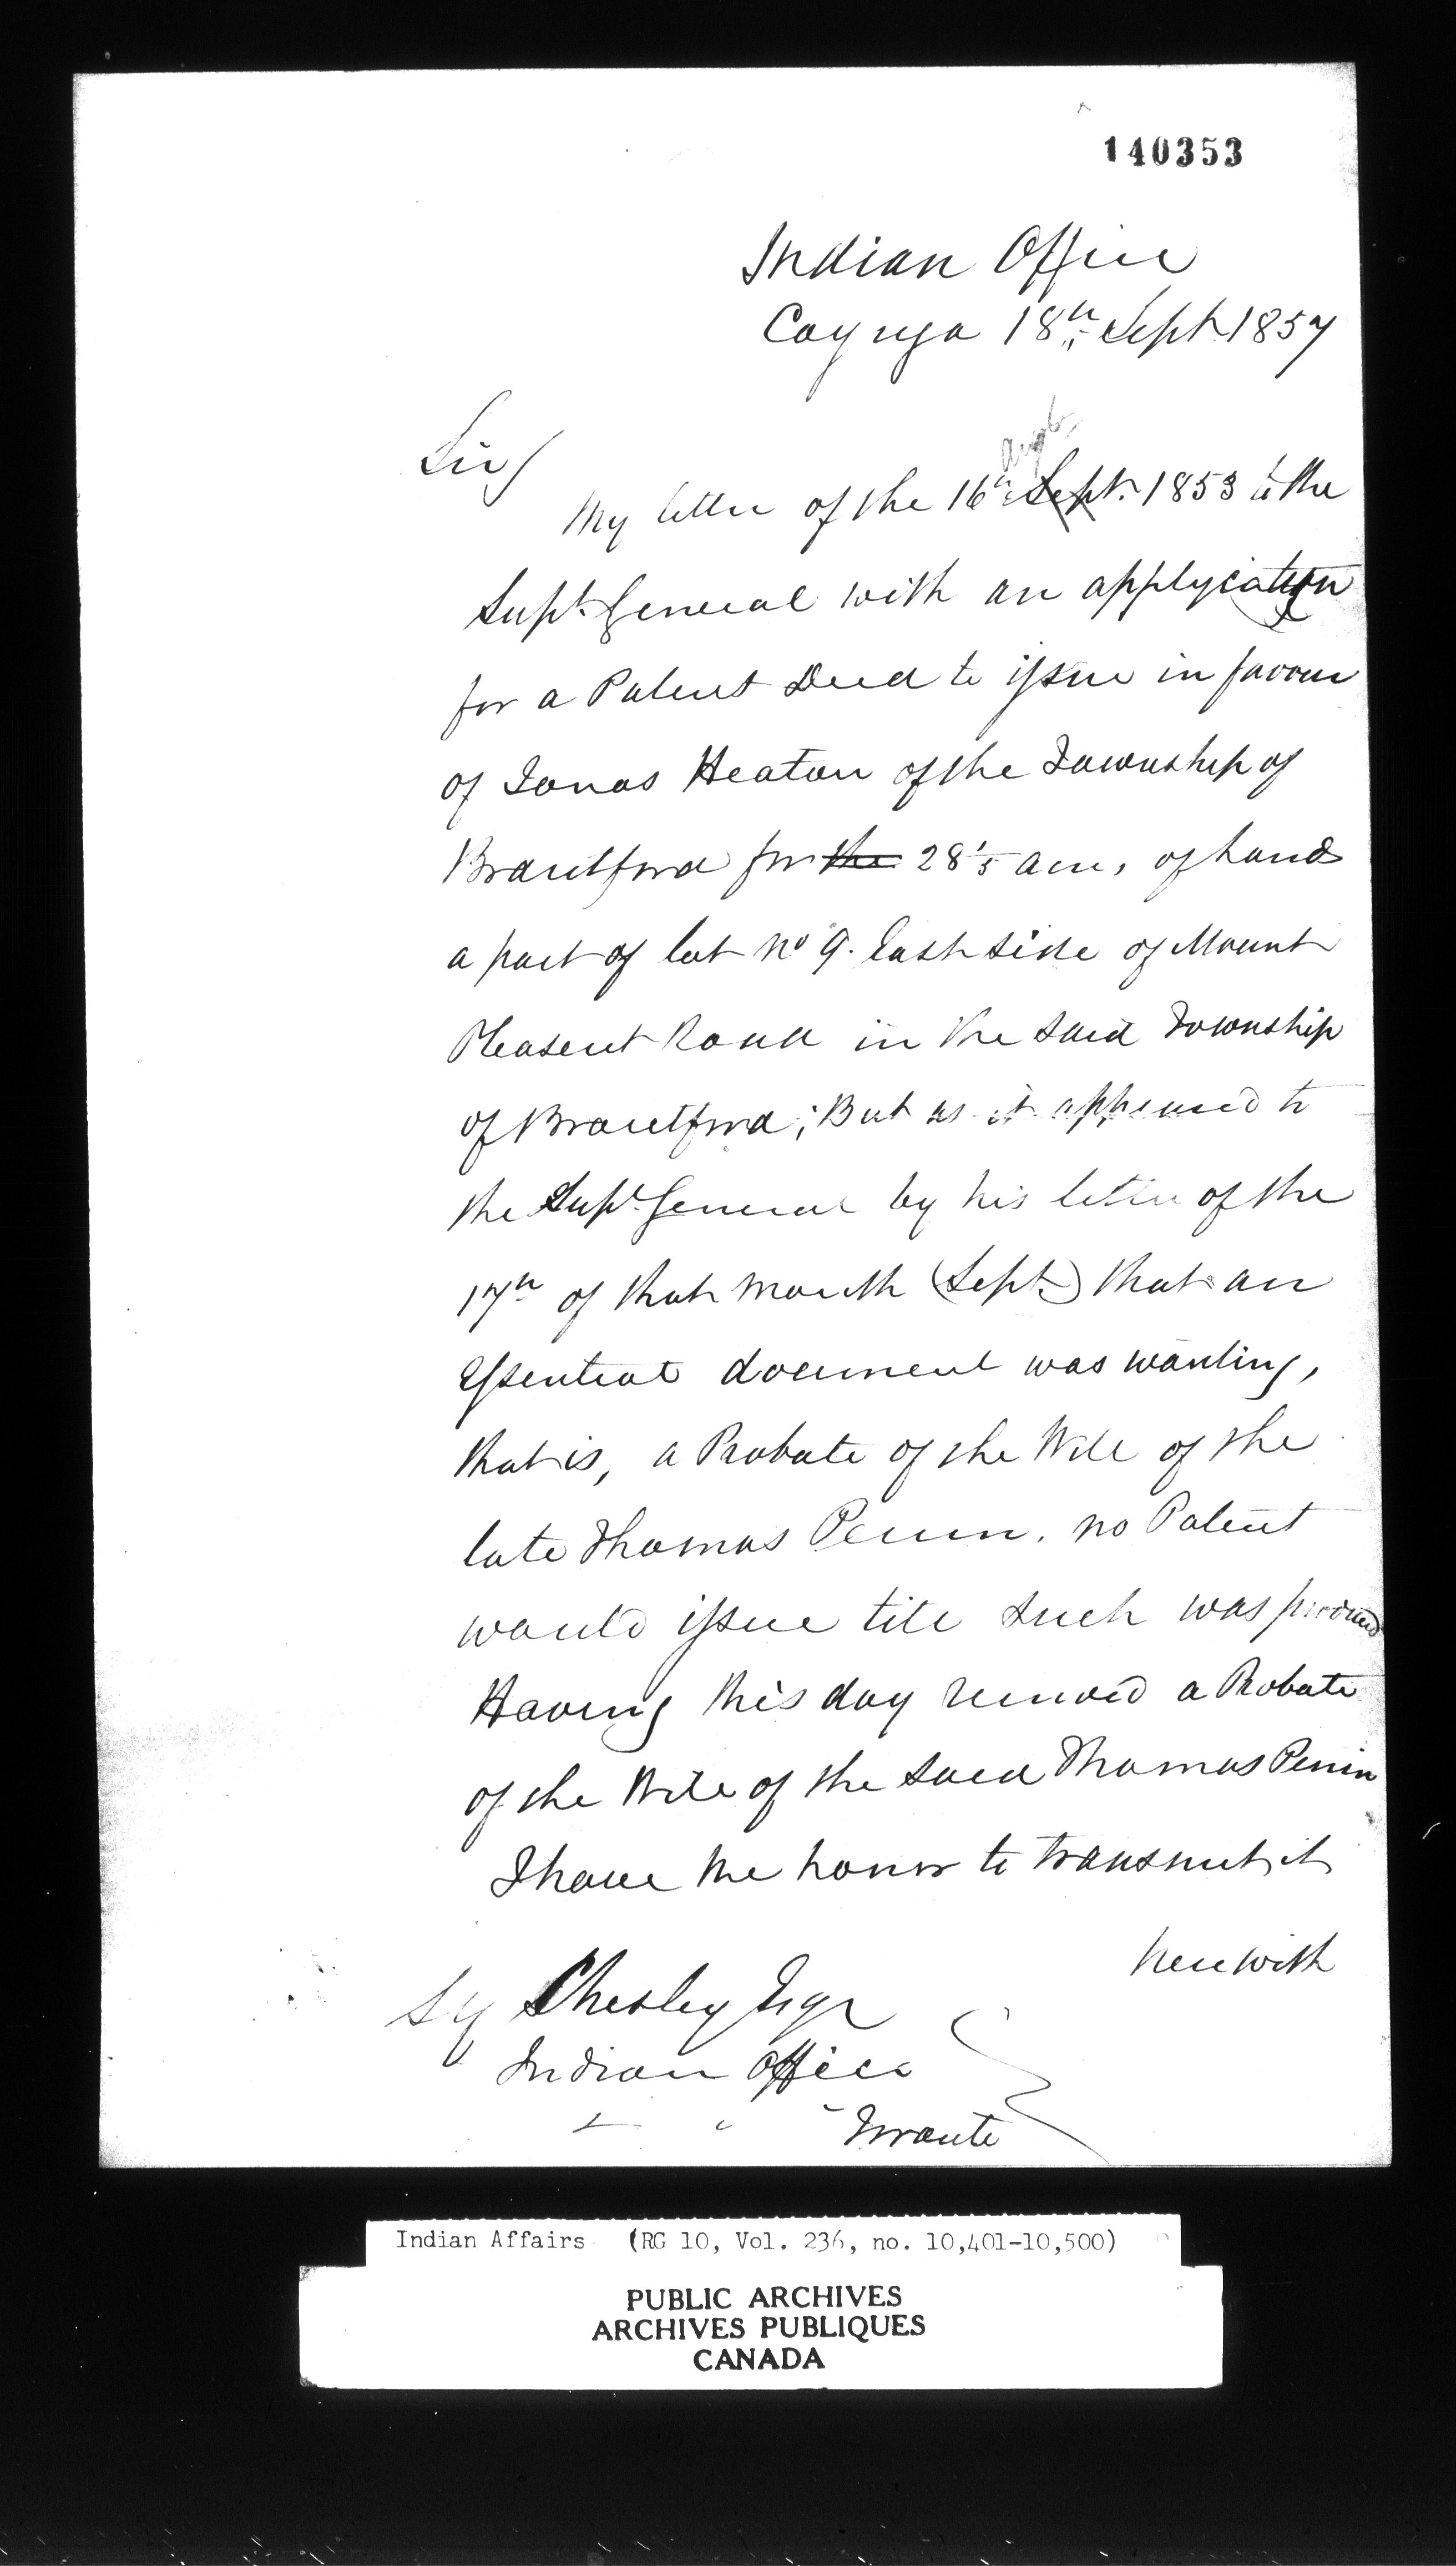 140353
Indian Office
Cayuga 18th Sept 1857
Sir/
My letter of the 16th Sept. 1853 to the
Supt. General with an applycation
for a Patent Deed to issue in favour
of Jonas Heaton of the Township of
Brantford for the 28 1/5 acres of Land
a part of lot No 9. East side of Mount
Pleasent Road in the said Township
of Brantford; But as it appeared to
the Supt. General by his letter of the
17th of that month (Sept.) that an
Essential document was wanting,
that is, a Probate of the Will of the
late Thomas Perrin. no Patent
would issue till such was
Having this day received a Probate
of the Will of the said Thomas Perrin
I have the honor to transmit it
herewith
S Y Chesley Esqr
Indian Office
Toronto
Indian Affairs (RG 10, Vol. 236, no. 10,401-10,500)
PUBLIC ARCHIVES
ARCHIVES PUBLIQUES
CANADA